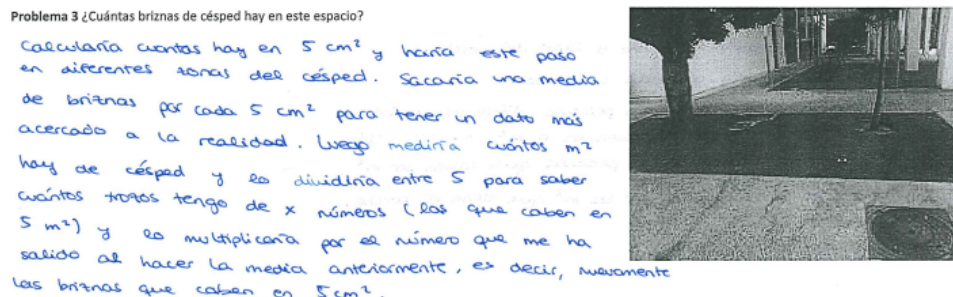 Problema 3 ¿Cuántas briznas de césped hay en este espacio?
Calcularía cuantas hay en 5 cm² y haría este paso
en diferentes zonas del césped. Sacaría una media
de briznas por cada 5 cm² para tener un dato más
acercado a la realidad. Luego mediría cuántos m²
hay de césped y lo dividiría entre 5 para saber
cuántos trozos tengo de x números (las que caben en
5 m²) y lo multiplicaría por el número que me ha
salido al hacer la media anteriormente, es decir, nuevamente
las briznas que caben en 5cm².